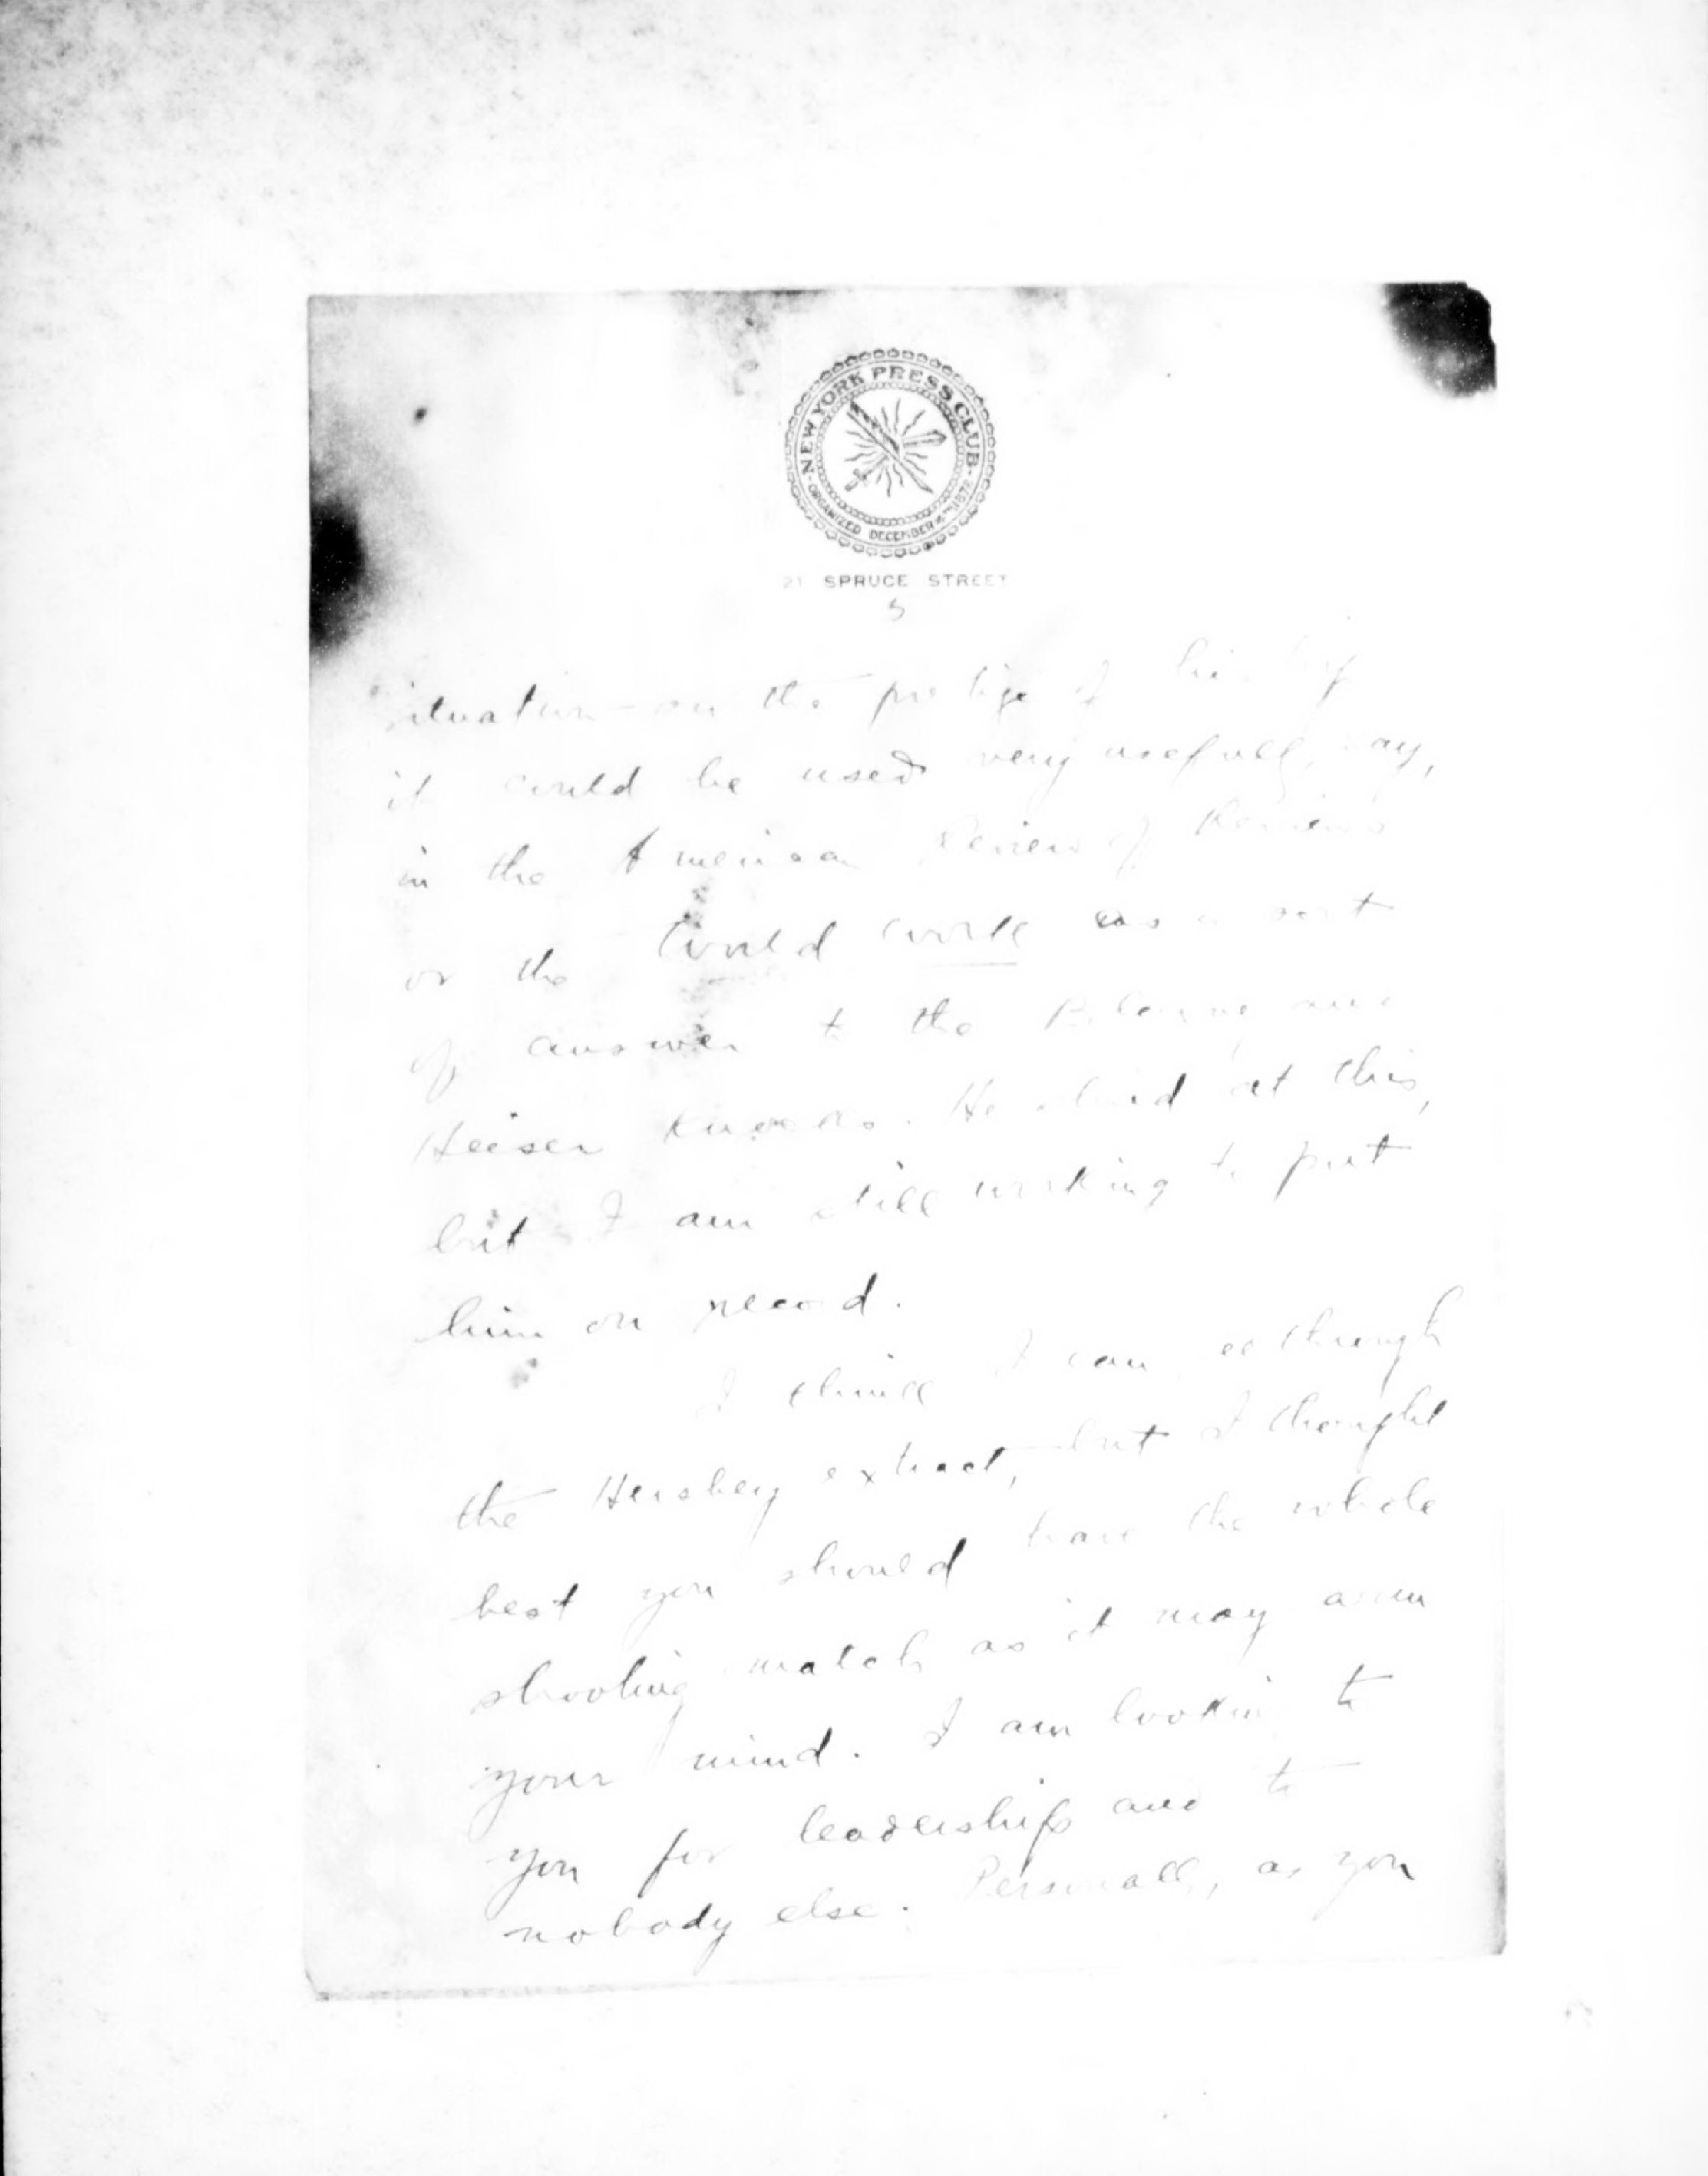 NEW YORK PRESS CLUB
ORGANIZED DECEMBER 1872
21 SPRUCE STREET
situation on the prestige of his
it could be used very usefully, say,
in the American Review of Reviews
or the World Work as a sort
of answer to the and
Heiser knocks. He at this,
but I am still working to put
him on record.
I think I can see through
the Hershey extract, but I thought
best you should have the whole
shooting match as it may
your mind. I am looking to
you for leadership and to
nobody else. Personally, as you